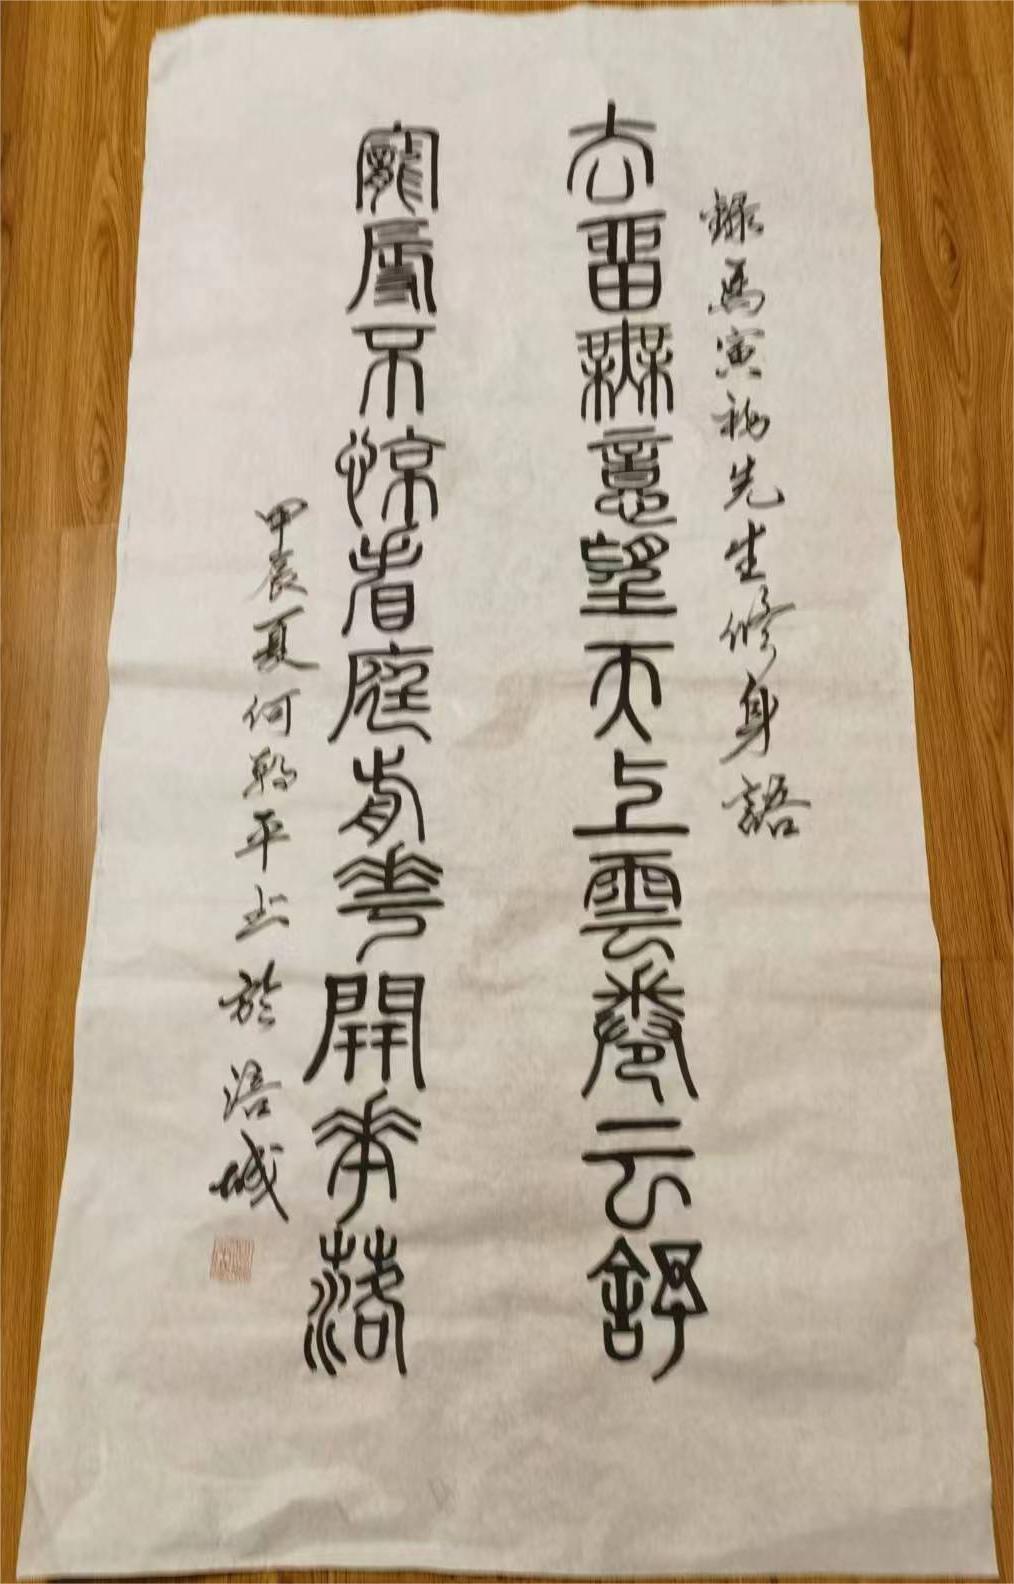 錄馬寅初先生修身語
去留無意望天上雲卷云舒
寵辱不惊看庭前華開華落
甲辰夏何平书於涪城